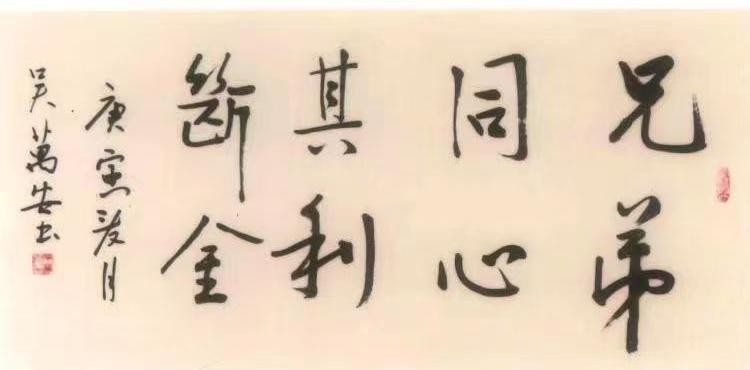 兄弟
同心
其利
斷金
庚寅荷月
吴萬安书